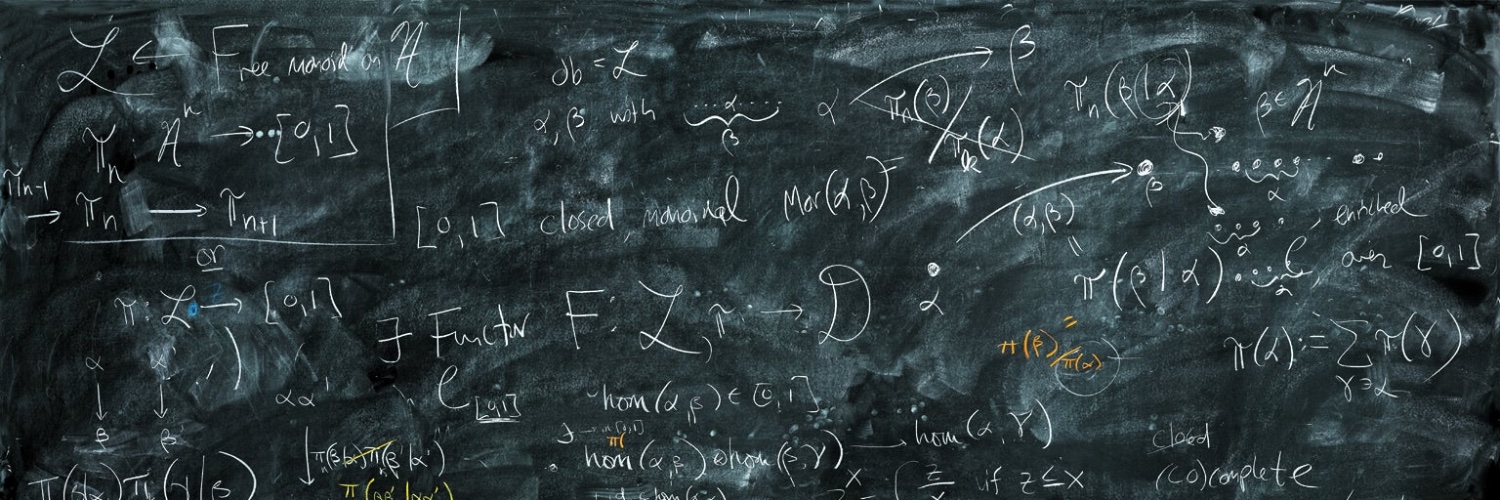 ℒ ← Free monoid on 𝒜
π_n : 𝒜^n → [0,1]
π_{n-1} → π_n → π_{n+1}
or
π : ℒ → [0,1]
α α'
↓ ↓
β β
π(β|α) π(γ|β)
ob = ℒ
α, β with ...α... β
α → β π_n(β)/π_k(α)
[0,1] closed, monoidal Mor(α,β) =
∃ Functor F : ℒ, π → D
C_{[0,1]}
αα'
π_n(β|α) π_n(β|α')
π(ββ'|αα')
hom(α,β) ∈ [0,1]
hom(α,β) ⊗ hom(β,γ) → hom(α,γ)
z/x if z ≤ x
π_n(β|α) β ∈ 𝒜^n
(α,β) β
α
=
π(β|α)
, enriched
over [0,1]
= π(β)/π(α)
π(α) := Σ π(γ)
γ∋α
closed
(co)complete